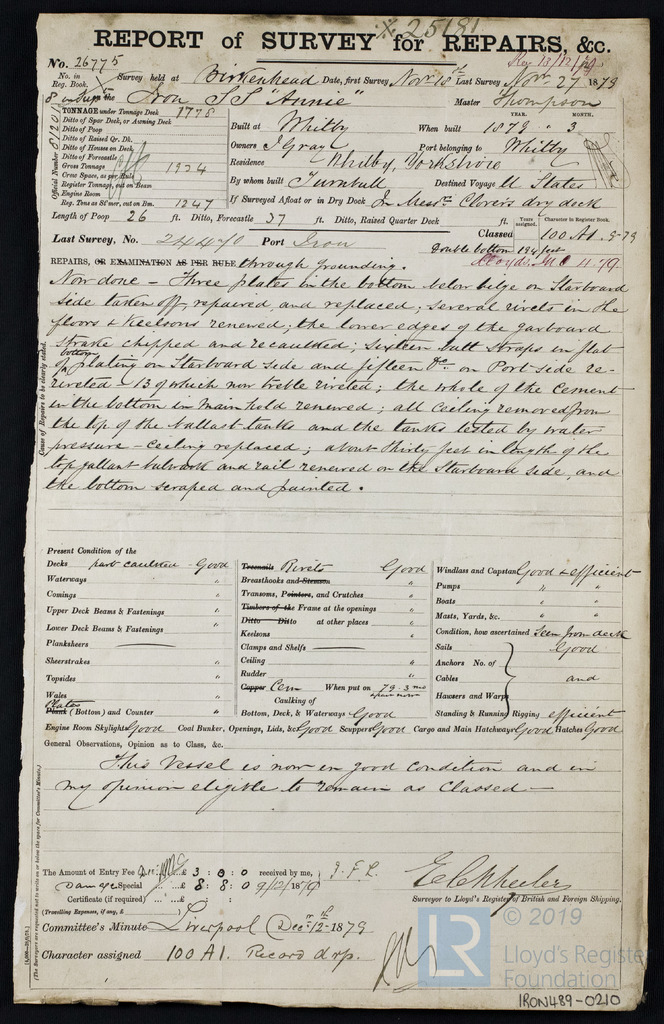 25181
REPORT of SURVEY for REPAIRS, &c.
No. 26775
No. in Reg. Book.
Survey held at Birkenhead Date, first Survey Nov 18th Last Survey Nov 27 1879
the Iron SS "Annie" Master Thompson
TONNAGE under Tonnage Deck 1778
Ditto of Spar Deck, or Awning Deck
Ditto of Poop
Ditto of Raised Qr. Dk.
Ditto of Houses on Deck
Ditto of Forecastle
Gross Tonnage 1924
Gross Space, as per Rule
Register Tonnage, cut on Beam
Engine Room
Reg. Tons as St'mer, cut on Bm. 1247
Official Number
YEAR. MONTH.
Built at Whitby When built 1879 " 3
Owners J Gray Port belonging to Whitby
Residence Whitby, Yorkshire
By whom built Turnbull Destined Voyage U States
If Surveyed Afloat or in Dry Dock In Messrs Clovers dry dock
Length of Poop 26 ft. Ditto, Forecastle 37 ft. Ditto, Raised Quarter Deck ft.
Years assigned. Character in Register Book.
Last Survey, No. 24470 Port Iron Classed 100 A1. 3-79
Double bottom 194 feet
Lloyds MC 4.79
REPAIRS, OR EXAMINATION AS PER RULE through grounding.
Cause of Repairs to be clearly stated.
Now done - Three plates in the bottom below bilge on Starboard
side taken off, repaired, and replaced; several rivets in the
floors & Keelsons renewed; the lower edges of the garboard
Strake chipped and recaulked; sixteen butt straps in flat
of bottom plating on Starboard side and fifteen Do on Port side re-
riveted - 13 of which now treble riveted; the whole of the Cement
in the bottom in Main hold renewed; all ceiling removed from
the top of the ballast-tanks and the tanks tested by water
pressure - ceiling replaced; about thirty feet in length of the
topgallant bulwark and rail renewed on the Starboard side, and
the bottom scraped and painted.
Present Condition of the
Decks part caulked - Good
Waterways "
Comings "
Upper Deck Beams & Fastenings "
Lower Deck Beams & Fastenings "
Planksheers
Sheerstrakes "
Topsides "
Wales "
Plates
Plank (Bottom) and Counter "
Treenails Rivets Good
Breasthooks and Stemson "
Transoms, Pointers, and Crutches "
Timbers of the Frame at the openings "
Ditto Ditto at other places "
Keelsons "
Clamps and Shelfs
Ceiling "
Rudder "
Copper Cem When put on 79.3 mo
Caulking of
Bottom, Deck, & Waterways Good
Windlass and Capstan Good & efficient
Pumps " "
Boats " "
Masts, Yards, &c. " "
Condition, how ascertained Seen from deck
Sails Good
Anchors No. of
Cables and
Hawsers and Warps
Standing & Running Rigging efficient
Engine Room Skylights Good Coal Bunker, Openings, Lids, &c. Good Scuppers Good Cargo and Main Hatchways Good Hatches Good
General Observations, Opinion as to Class, &c.
This Vessel is now in good condition and in
my opinion eligible to remain as Classed -
The Amount of Entry Fee £ 3 : 0 : 0 received by me,
Damage Special £ 8 : 8 : 0 9/12/1879
Certificate (if required)
(Travelling Expenses, if any, £ )
E C Wheeler
Surveyor to Lloyd's Register of British and Foreign Shipping.
Committee's Minute Liverpool Decr 12th 1879
Character assigned 100 A1. Record drp.
© 2019
LR
Lloyd's Register
Foundation
IRON489-0210